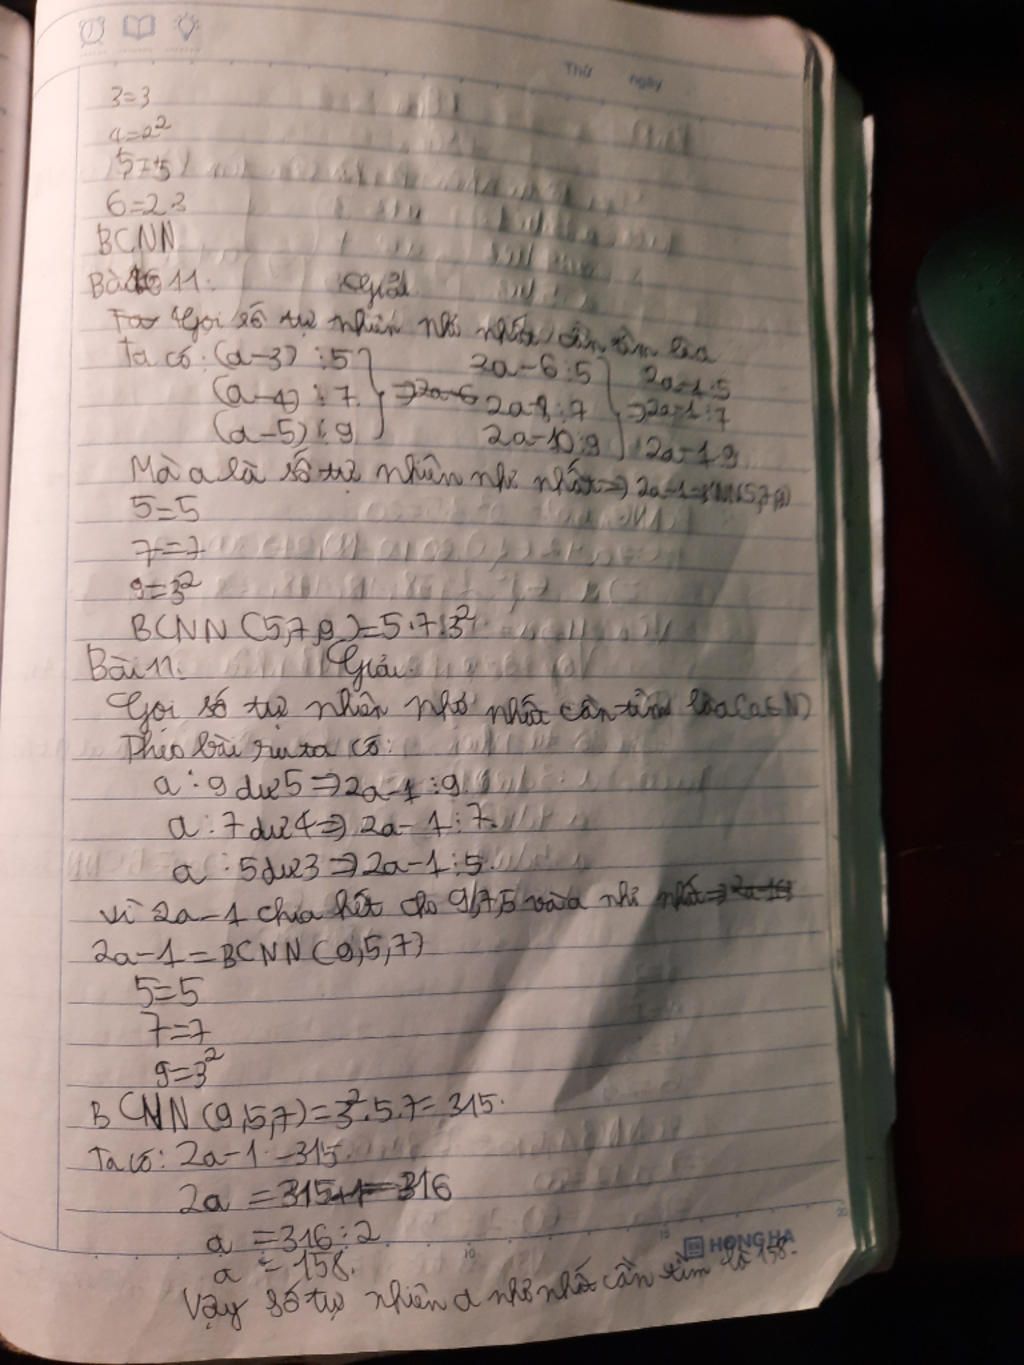 Thứ ngày
3=3
4=2²
5=5
6=2.3
BCNN
Bài 11: Giải
Gọi số tự nhiên nhỏ nhất cần tìm là a
Ta có: (a-3) ⋮ 5 2a-6 ⋮ 5 2a-1 ⋮ 5
(a-4) ⋮ 7 ⇒ 2a-8 ⋮ 7 ⇒ 2a-1 ⋮ 7
(a-5) ⋮ 9 2a-10 ⋮ 9 2a-1 9
Mà a là số tự nhiên nhỏ nhất ⇒ 2a-1=
5=5
7=7
9=3²
BCNN (5,7,9)=5.7.3²
Bài 11: Giải.
Gọi số tự nhiên nhỏ nhất cần tìm là a (a∈N)
Theo bài ra ta có:
a : 9 dư 5 ⇒ 2a-1 ⋮ 9
a : 7 dư 4 ⇒ 2a-1 ⋮ 7.
a : 5 dư 3 ⇒ 2a-1 ⋮ 5.
Vì 2a-1 chia hết cho 9,7,5 và a nhỏ nhất ⇒
2a-1=BCNN(9,5,7)
5=5
7=7
9=3²
BCNN(9,5,7)=3².5.7=315.
Ta có: 2a-1 = 315
2a = 315+1=316
a = 316:2
a = 158.
Vậy số tự nhiên a nhỏ nhất cần tìm là 158.
HONG HA